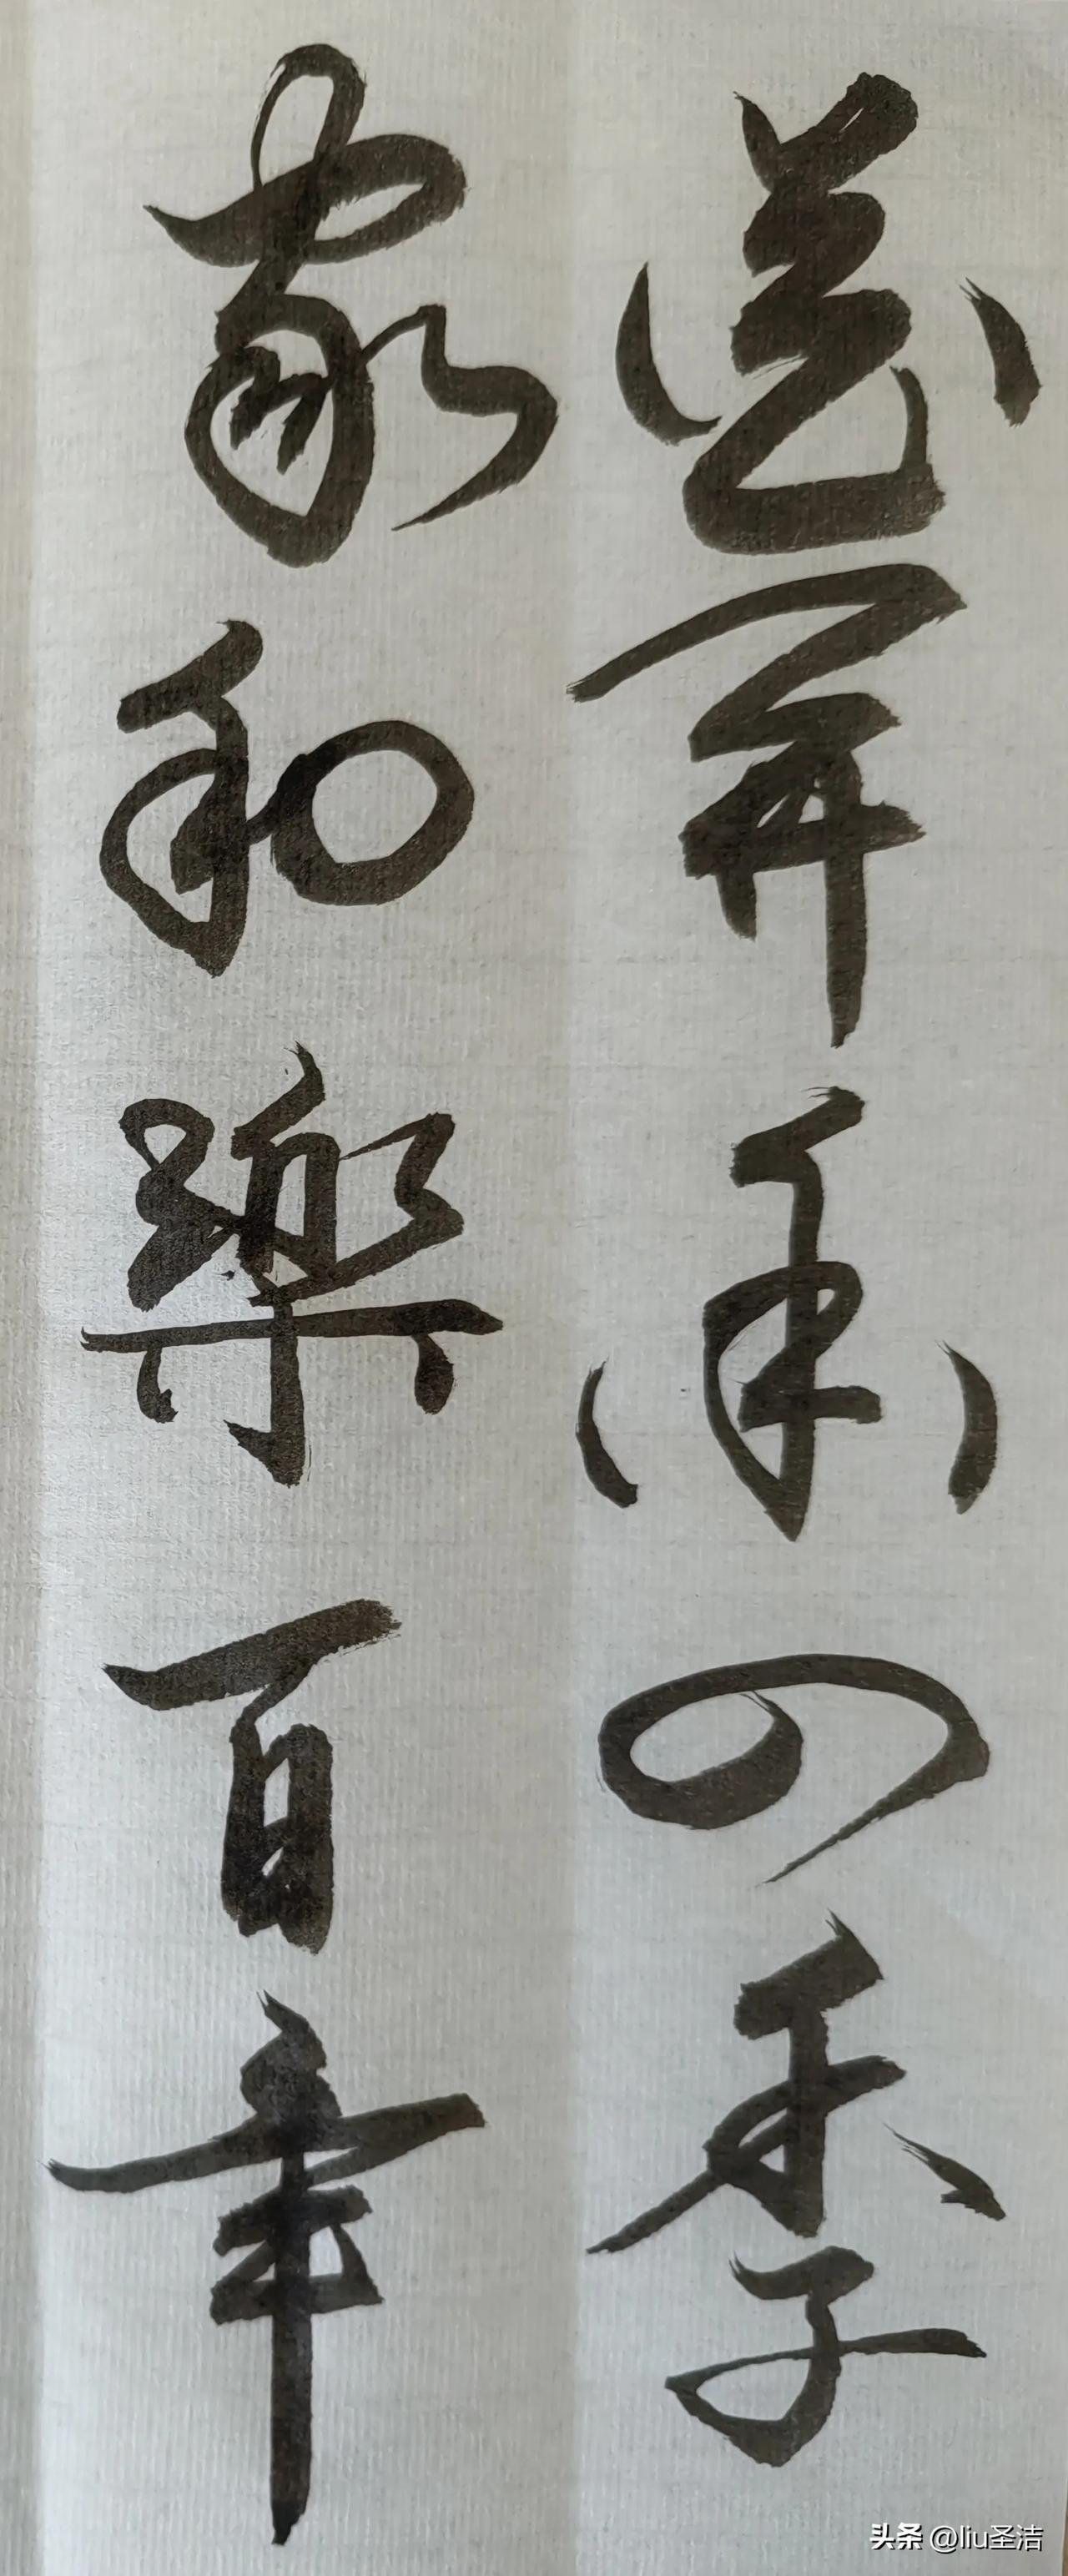 開四季
家和樂百年
头条 @liu圣洁